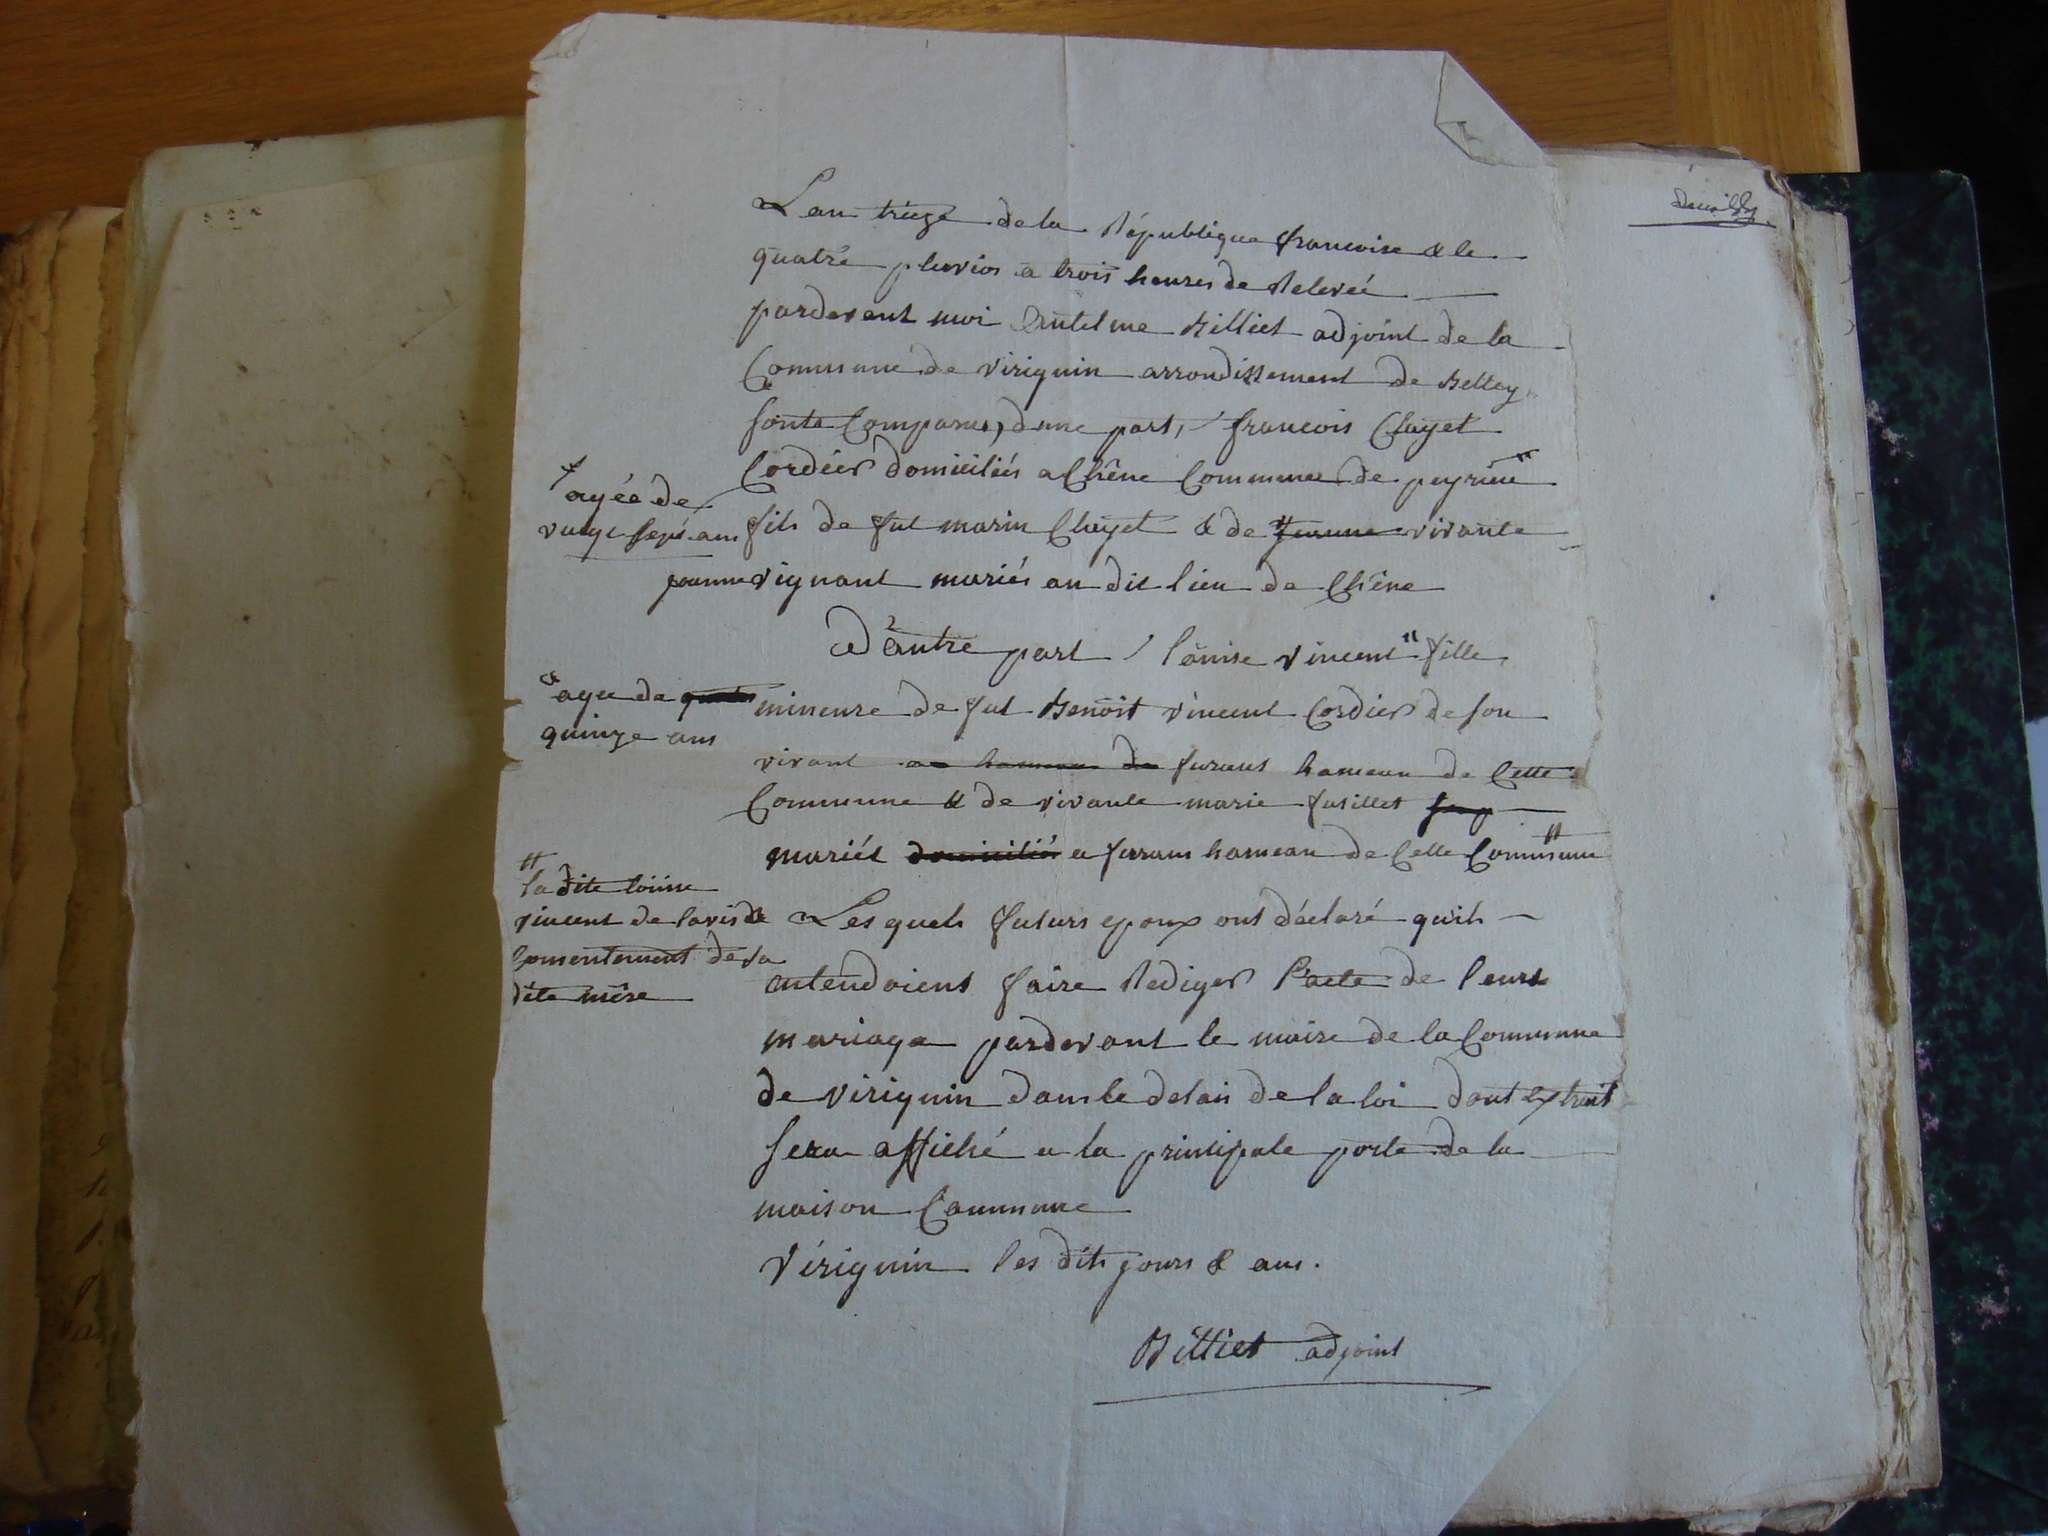 L'an treize de la République francoise & le
quatre pluvios a trois heures de Relevée
pardevant moi Antelme Billiet adjoint de la
Commune de virignin arrondissement de Belley
sonts Comparus, dune part, francois Clayet
Cordier domiciliés a Chêne Commune de peyrieu
+ agée de
vingt sept ans
fils de fut marin Clayet & de femme vivante
jeanne vignant mariés au dit lieu de Chêne
D'autre part / louise vincent " fille
" agee de
quinze ans
mineure de fut Benoit vincent Cordier de son
vivant au hameau de furans hameau de Cette
Commune & de vivante marie fusillet
mariés domiciliés a furans hameau de Cette Commune "
" la dite louise
vincent de lavis &
Consentement de sa
dite mère
Les quels futurs epoux ont déclaré quils
entendoient faire Rediger l'acte de leurs
mariage pardevant le maire de la Commune
de virignin dans le delais de la loi dont extrait
sera affiché a la principale porte de la
maison Commune
Virignin les dits jours & ans.
Billiet adjoint